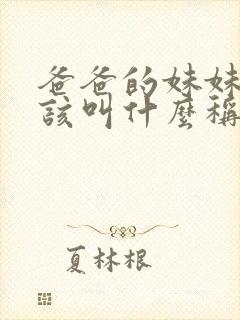 爸爸的妹妹
該叫什麼稱
夏林根